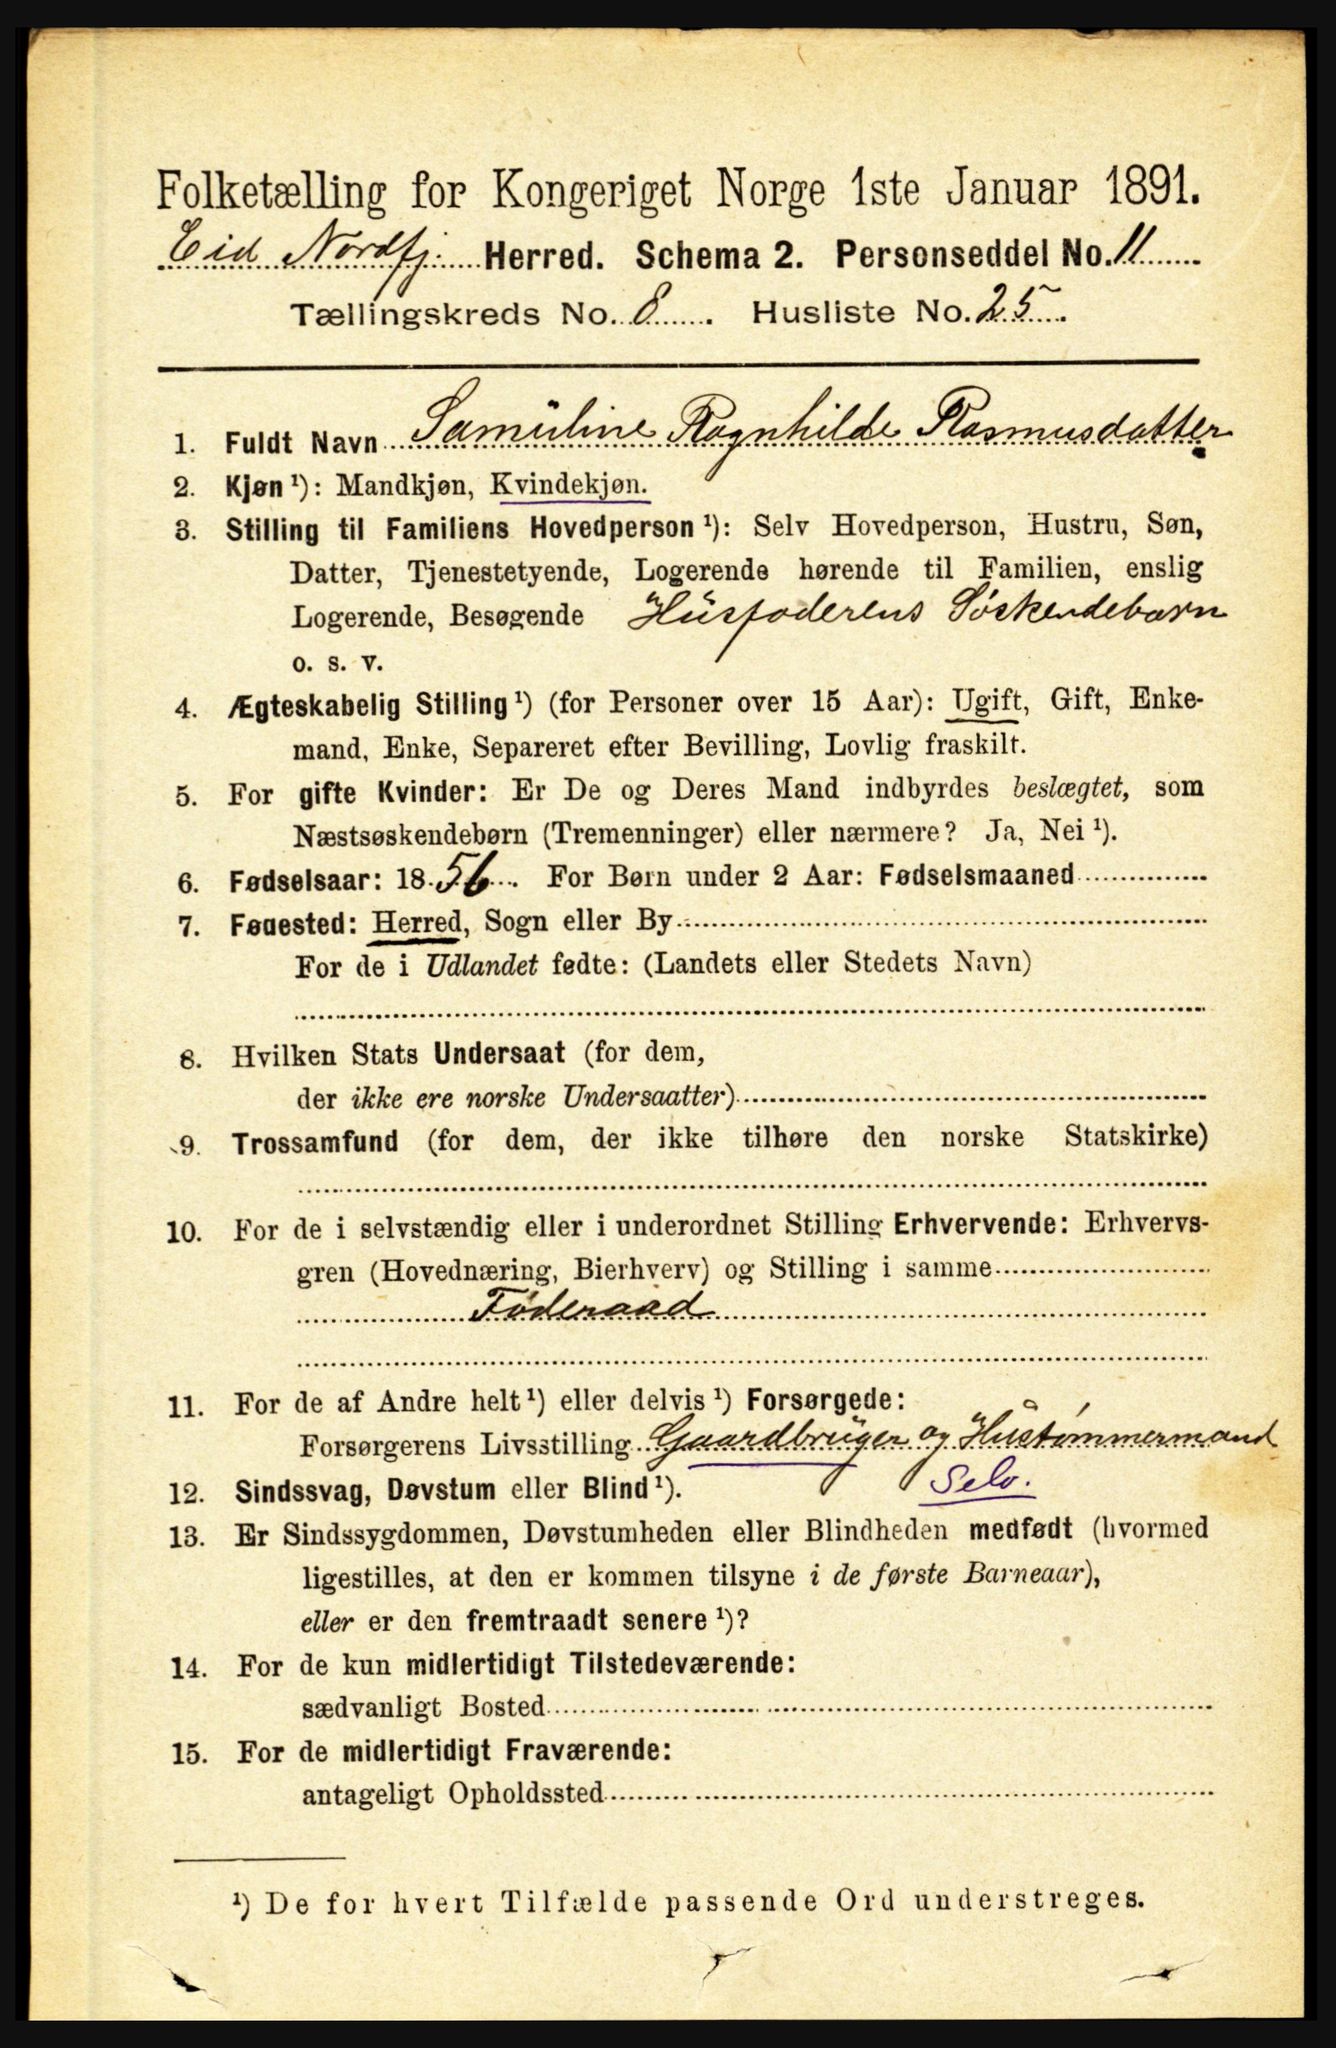 Folketælling for Kongeriget Norge 1ste Januar 1891.
Eid Nordfj. Herred. Schema 2. Personseddel No. 11
Tællingskreds No. 8. Husliste No. 25.
1. Fuldt Navn Samüline Ragnhilde Rasmusdatter
2. Kjøn ¹): Mandkjøn, Kvindekjøn.
3. Stilling til Familiens Hovedperson ¹): Selv Hovedperson, Hustru, Søn,
Datter, Tjenestetyende, Logerende hørende til Familien, enslig
Logerende, Besøgende Hüsfaderens Søskendebarn
o. s. v.
4. Ægteskabelig Stilling ¹) (for Personer over 15 Aar): Ugift, Gift, Enke-
mand, Enke, Separeret efter Bevilling, Lovlig fraskilt.
5. For gifte Kvinder: Er De og Deres Mand indbyrdes beslægtet, som
Næstsøskendebørn (Tremenninger) eller nærmere? Ja, Nei ¹).
6. Fødselsaar: 1856. For Børn under 2 Aar: Fødselsmaaned
7. Fødested: Herred, Sogn eller By
For de i Udlandet fødte: (Landets eller Stedets Navn)
8. Hvilken Stats Undersaat (for dem,
der ikke ere norske Undersaatter)
9. Trossamfund (for dem, der ikke tilhøre den norske Statskirke)
10. For de i selvstændig eller i underordnet Stilling Erhvervende: Erhvervs-
gren (Hovednæring, Bierhverv) og Stilling i samme
Føderaad
11. For de af Andre helt ¹) eller delvis ¹) Forsørgede:
Forsørgerens Livsstilling Gaardbrüger og Hüstømmermand
Selv.
12. Sindssvag, Døvstum eller Blind ¹).
13. Er Sindssygdommen, Døvstumheden eller Blindheden medfødt (hvormed
ligestilles, at den er kommen tilsyne i de første Barneaar),
eller er den fremtraadt senere ¹)?
14. For de kun midlertidigt Tilstedeværende:
sædvanligt Bosted
15. For de midlertidigt Fraværende:
antageligt Opholdssted
¹) De for hvert Tilfælde passende Ord understreges.